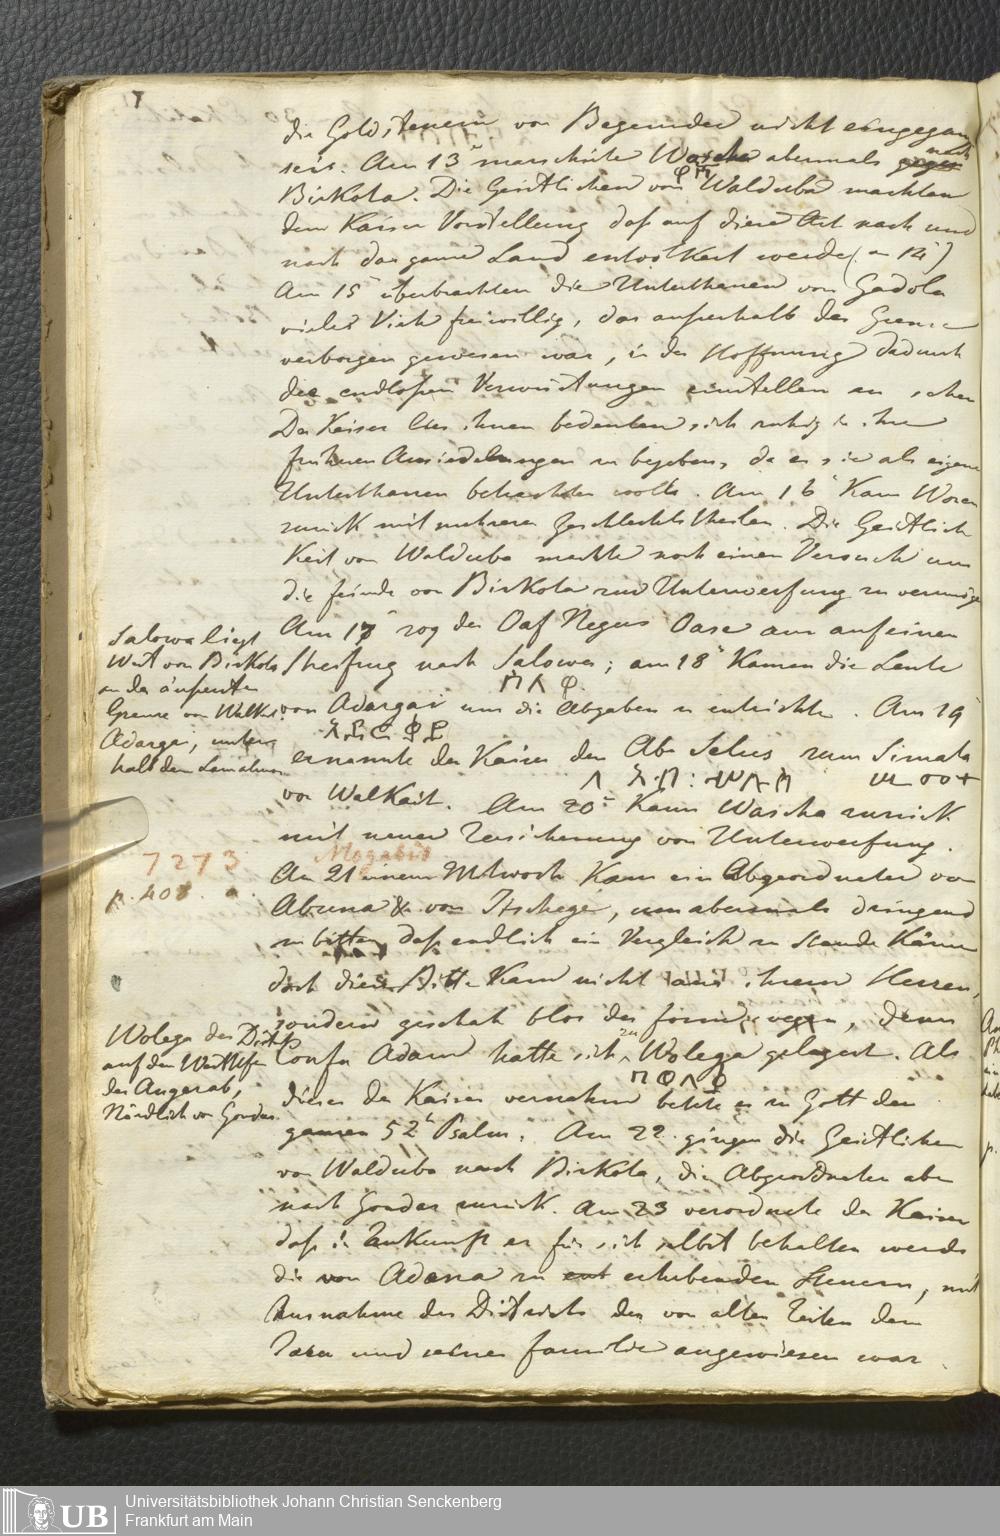 7
die Goldsteuern von Begemder nicht eingegan
seis. Am 13n marschirte Wascha abermals gegen nach
Birkota. Die Geistlichen von Walduba machten
dem Kaiser Vorstellung daß auf diese Art nach und
nach das ganze Land entvölkert werde (am 14n)
Am 15n überbrachten die Unterthanen von Gadola
vieles Vieh freiwillig, das außerhalb der Grenze
verborgen gewesen war, in der Hoffnung dadurch
die endlosen Verwüstungen einstellen zu sehen
Der Kaiser lies ihnen bedeuten sich ruhig in ihre
früheren Ansiedelungen zu begeben, da er sie als eigene
Unterthanen betrachten wolle. Am 16n kam
zurück mit mehreren Geschlechtstheilen. Die Geistlich
keit von Walduba machte noch einen Versuch um
die feinde von Birkota zur Unterwerfung zu vermöge
Am 17n zog der Oaf Negus Oase am auf einen
Streifzug nach Salowa; am 18n kamen die Leute
von Adargai um die Abgaben zu entrichten. Am 19
ernannte der Kaiser den Abe Selus zum Simata
von Walkait. Am 20n kam Wascha zurück
mit neuer Versicherung von Unterwerfung.
Am 21 einem Mitwoch kam ein Abgeordneter vom
Abuna & vom Itschege, um abermals dringend
zu bitten, daß endlich ein Vergleich zu stande käme
doch diese Bitte kam nicht aus ihrem Herzen,
sondern geschah blos der form wegen, denn
Confu Adam hatte sich zu Wolega gelagert. Als
dieses der Kaiser vernahm betete er zu Gott den
ganzen 52n Psalm. Am 22. gingen die Geistlichen
von Walduba nach Birkota, die Abgeordneten aber
nach Gondar zurück. Am 23 verordnete der Kaiser
daß in Zukunft er für sich selbst behalten werde
die von Adena zu erhebenden Steuern, mit
Ausnahme des Districts der von alten Zeiten dem
und seiner familie angewiesen war.
Salowa liegt
West von Birkota
an der äußersten
Grenze von Walkait
Adargai, unter
halb dem Lamalmon
7273 Mogabit
p. 408.
Wolega der District
auf dem Westufer
des Angerab,
Nördlich von Gondar
Universitätsbibliothek Johann Christian Senckenberg
Frankfurt am Main
UB